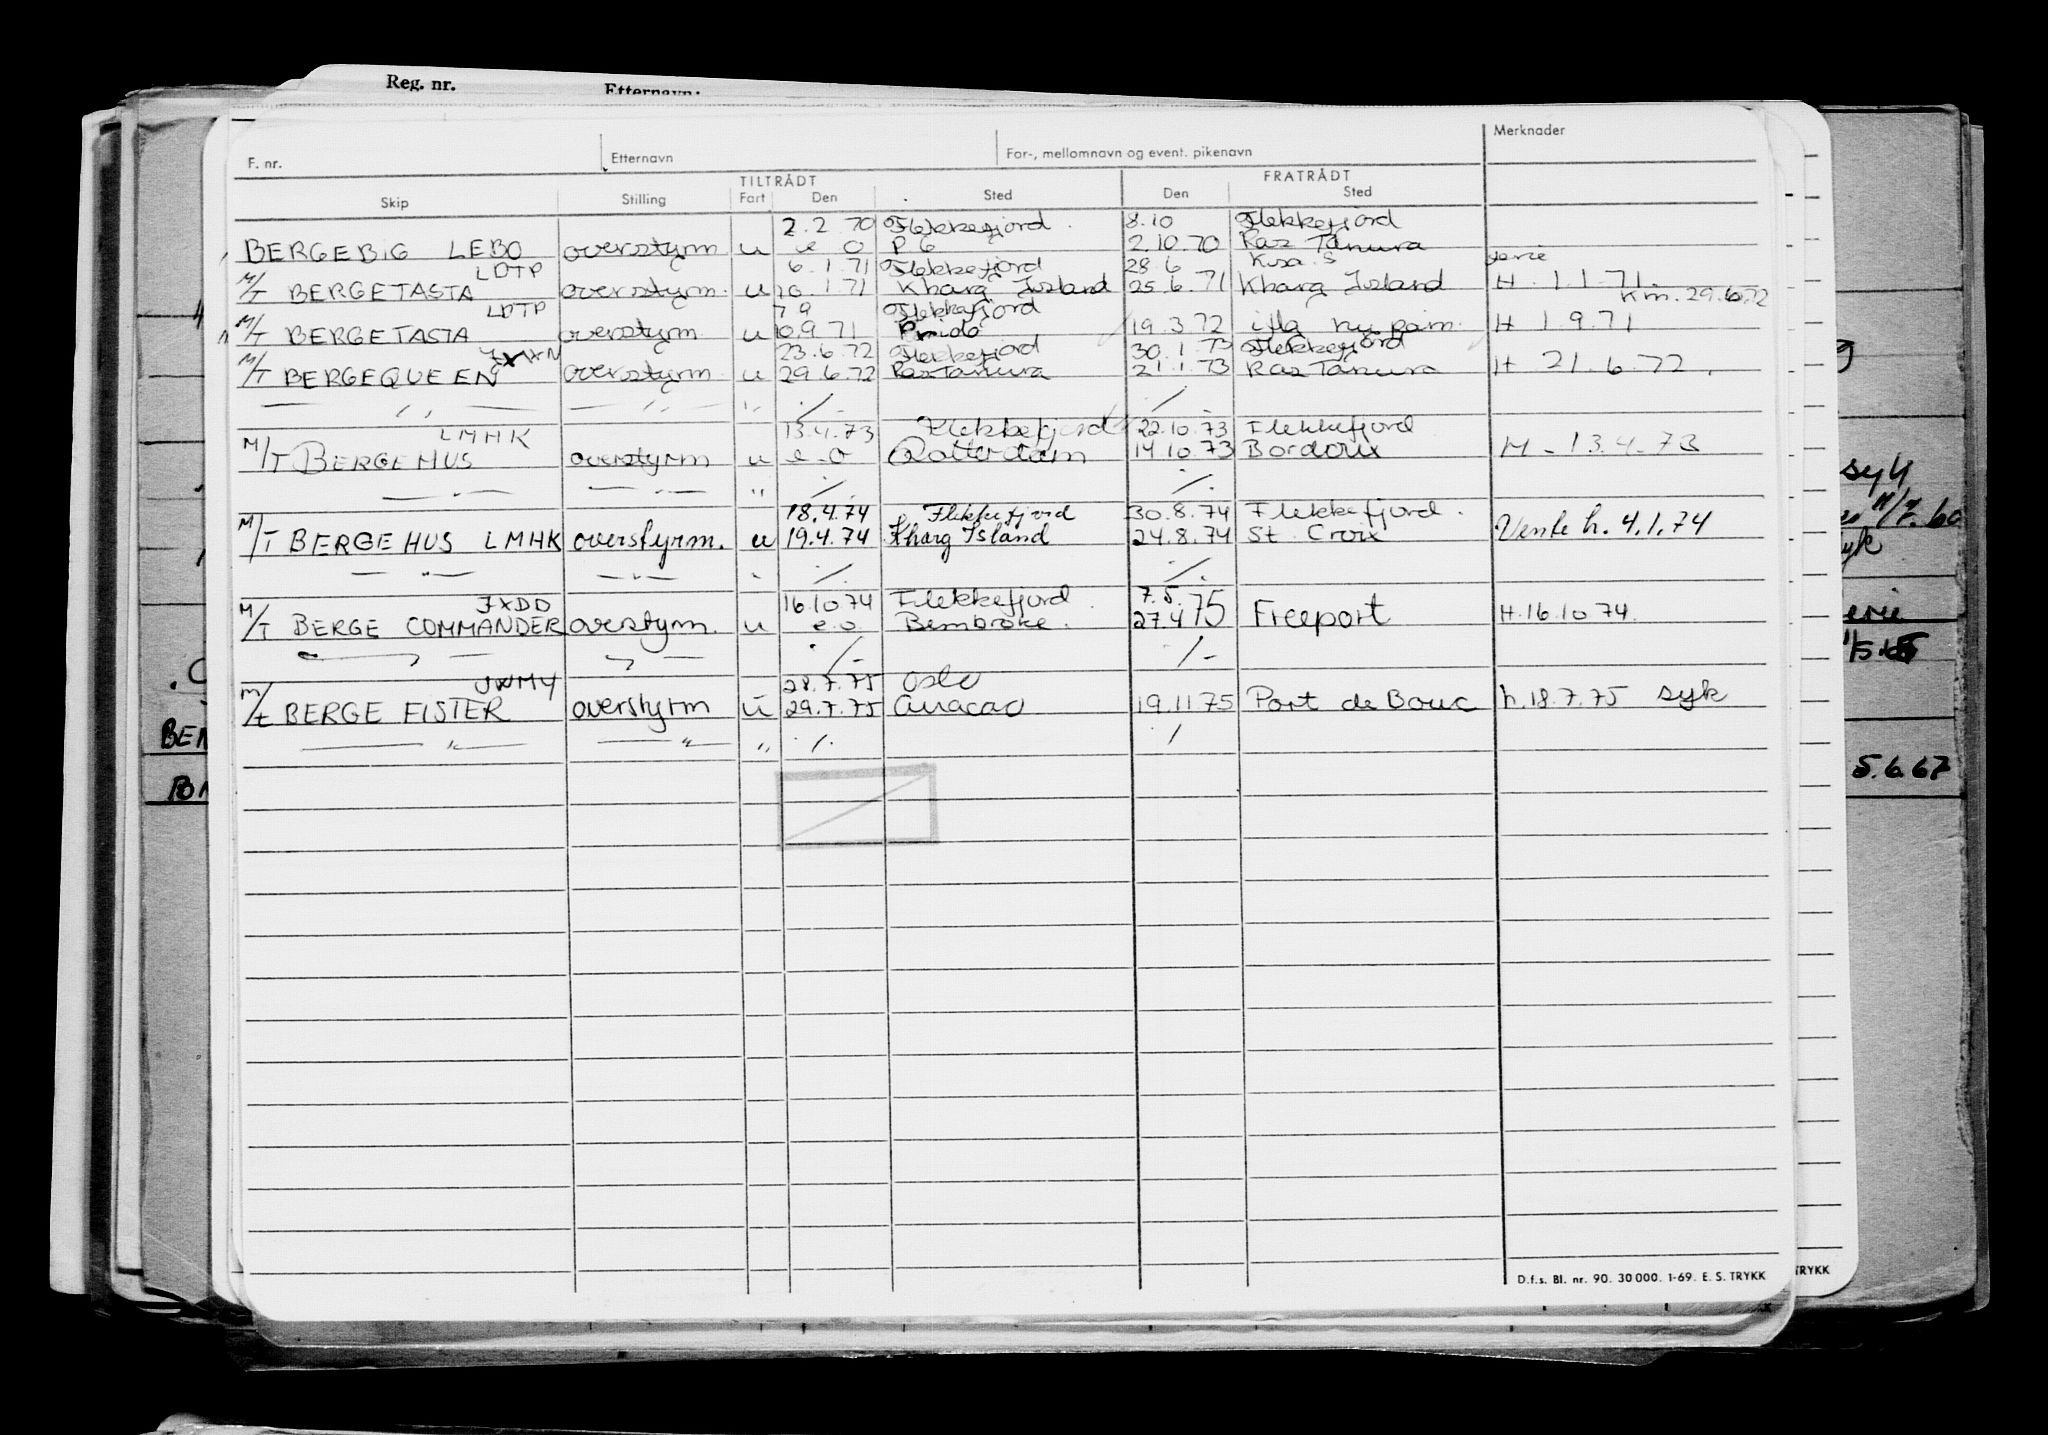 Reg. nr. Etternavn:
F. nr. Etternavn For-, mellomnavn og event. pikenavn Merknader
TILTRÅDT FRATRÅDT
Skip Stilling Fart Den Sted Den Sted
2.2.70 Flekkefjord. 8.10 Flekkefjord
BERGEBIG LEBO overstyrm u e o P G 2.10.70 Ras Tanura
LDTP 6.1.71 Flekkefjord 28.6 ferie
M/T BERGETASTA overstyrm. u 10.1.71 Kharg Island 25.6.71 Kharg Island H 1.1.71.
LDTP 7 9 Flekkefjord Km. 29.6.72
M/T BERGETASTA overstyrm u 10.9.71 19.3.72 H 1.9.71
23.6.72 Flekkefjord 30.1.73 Flekkefjord
M/T BERGEQUEEN overstyrm u 29.6.72 Ras Tanura 21.1.73 Ras Tanura H 21.6.72.
— ,, — — ,, — ,, ./. ./.
LMHK 13.4.73 Flekkefjord 22.10.73 Flekkefjord
M/T BERGEHUS overstyrm u e o Rotterdam 14.10.73 Bordoux M - 13.4.73
— " — — " — " ./. ./.
18.4.74 Flekkefjord 30.8.74 Flekkefjord.
M/T BERGEHUS LMHK overstyrm. u 19.4.74 Kharg Island 24.8.74 St. Croix Vente h. 4.1.74
— " — — " — " ./. ./.
JXDD 16.10 74 Flekkefjord. 7.5.
M/T BERGE COMMANDER overstyrm. u e.o. Bembroke. 27.4 75 Freeport H.16.10 74.
— , — , — ./- ./-
JWMY 28.7.75 Oslo
M/t BERGE FISTER overstyrm u 29.7.75 Curacao 19.11 75 Port de Bouc h.18.7.75 syk
— " — — " — ,, ./. /
syk
BER
5.6.67
D.f.s. Bl. nr. 90. 30 000. 1-69. E. S. TRYKK
TRYKK